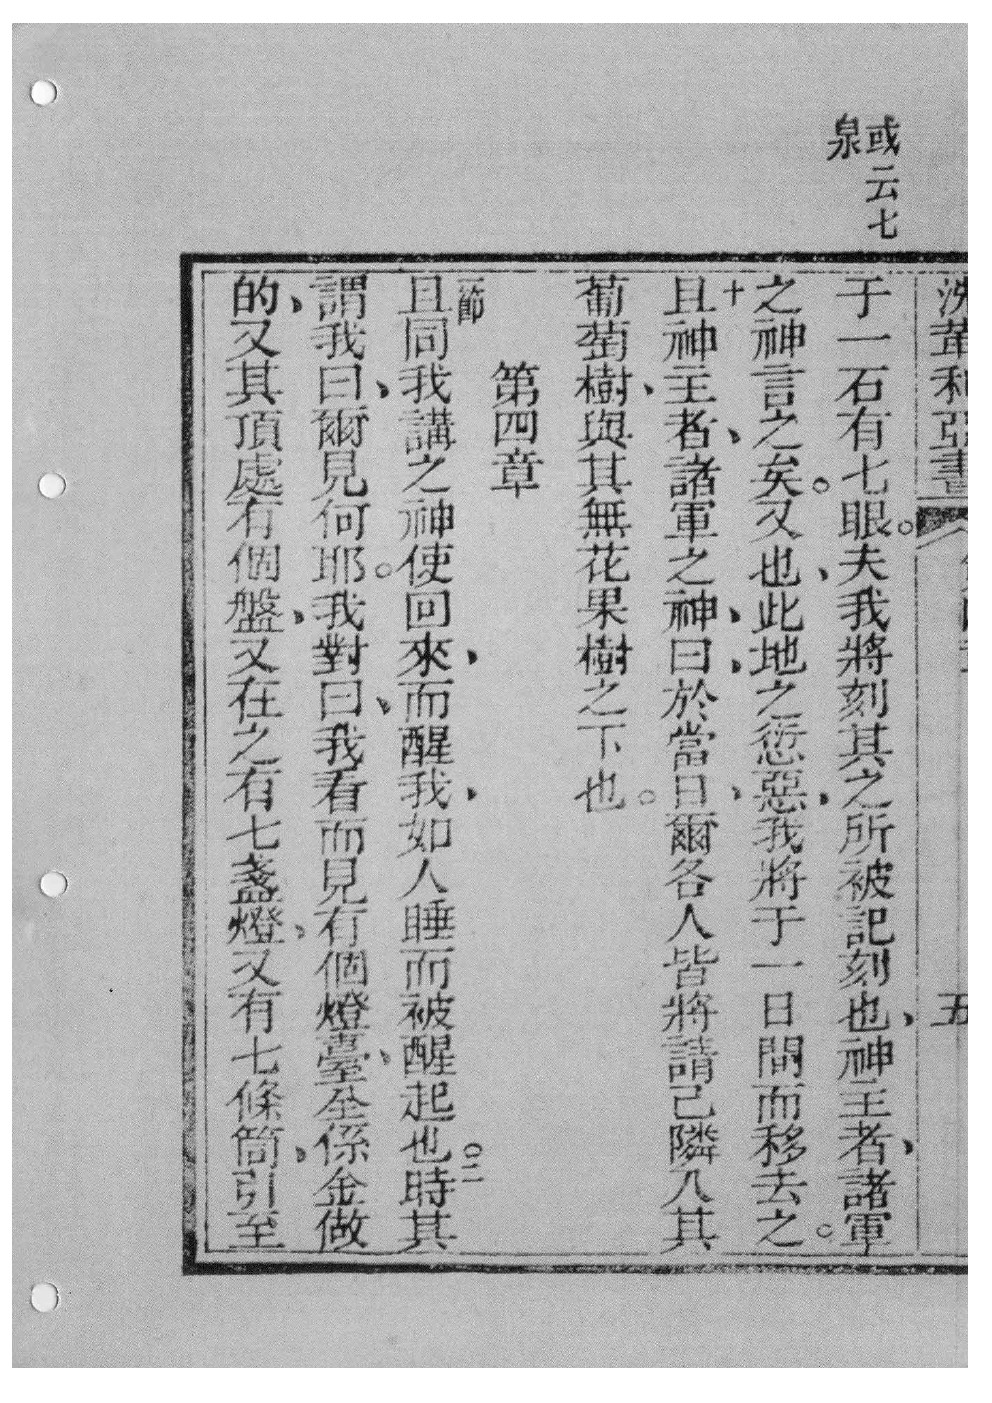 或云七
泉
洗革利亞書 五
于一石有七眼。夫我將刻其之所被記刻也、神主者、諸軍
之神言之矣。又也、此地之愆惡、我將于一日間而移去之。
十且神主者、諸軍之神、曰、於當日、爾各人皆將請己隣人其
葡萄樹、與其無花果樹之下也。
第四章
一節且同我講之神使回來、而醒我、如人睡而被醒起也。二時其
謂我曰、爾見何耶。我對曰、我看而見有個燈臺、全係金做
的、又其頂處有個盤、又在之有七盞燈、又有七條筒、引至